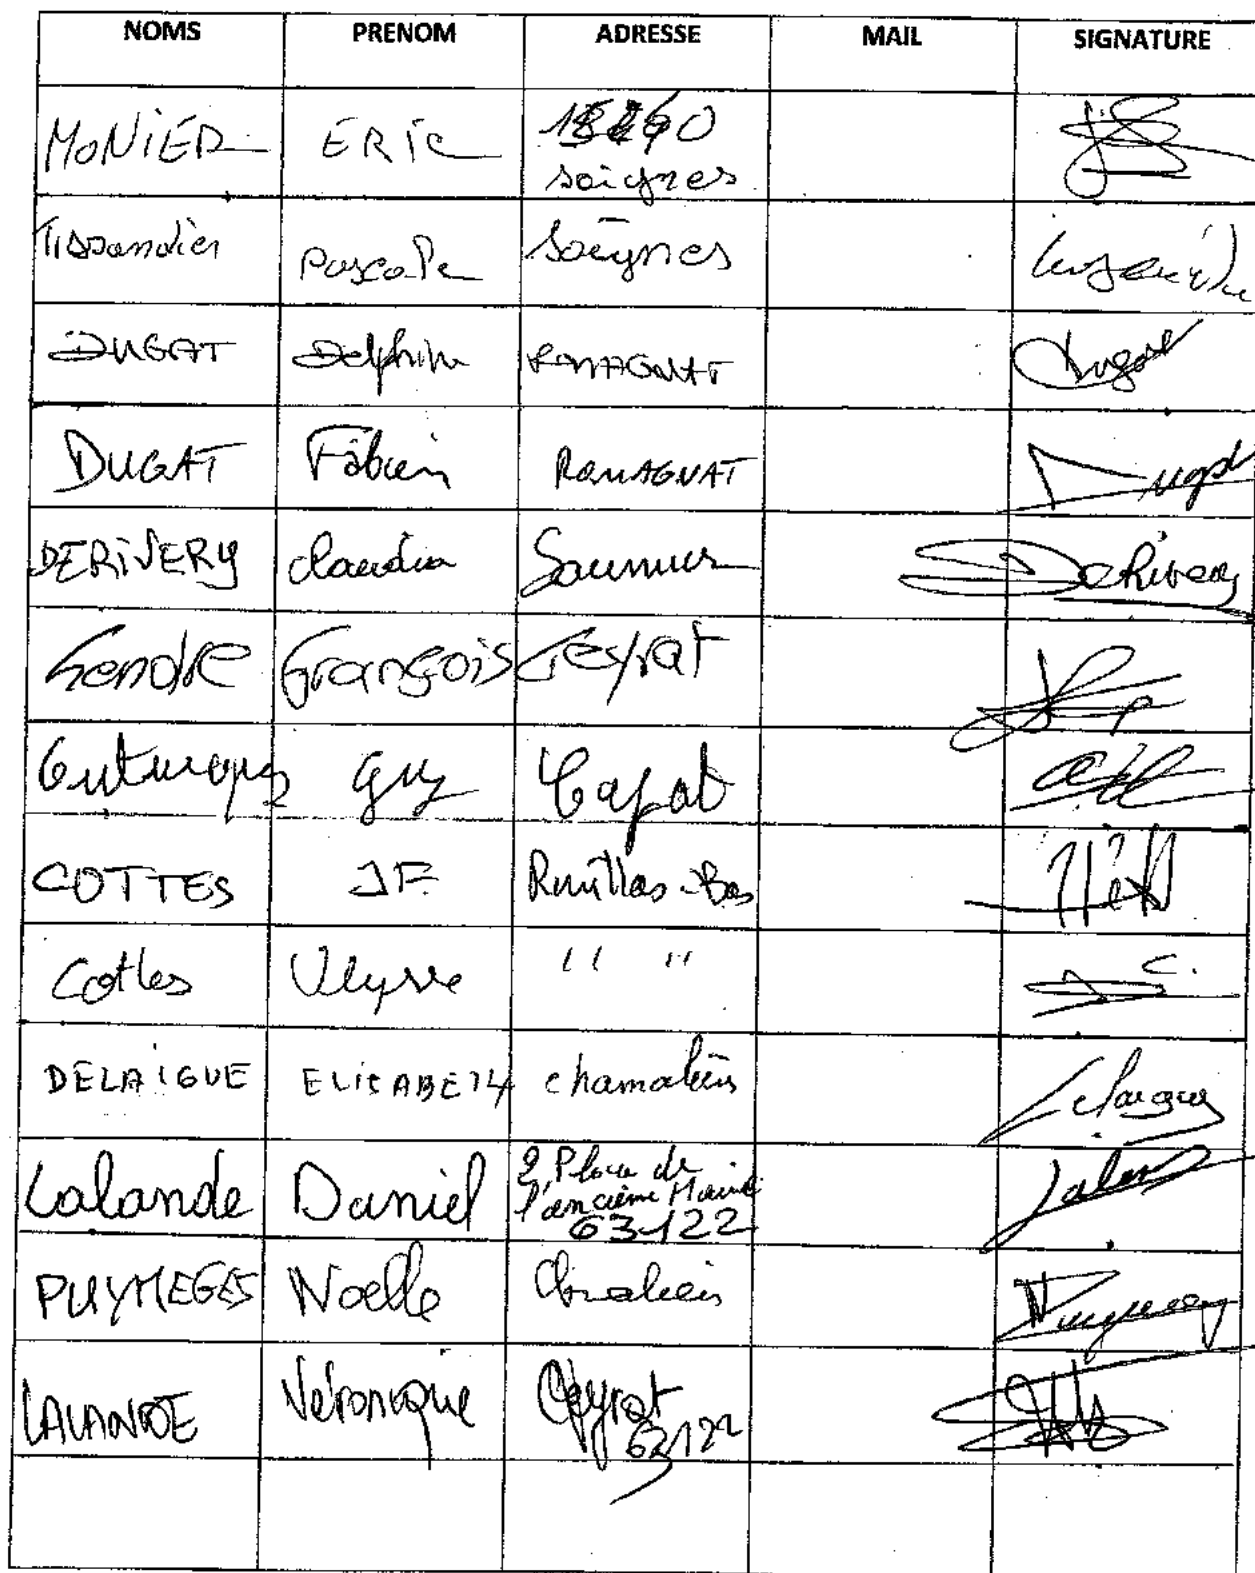 NOMS PRENOM ADRESSE MAIL SIGNATURE
MONIER ERIC
soignes
Tissandier Pascale Soignes
DUGAT Delphine ROMAGNAT Dugat
DUGAT Fabien ROMAGNAT Dugat
DERIVERY Claudia Saumur Derivery
Gendre François Ceyrat
Guy
COTTES JF.
Cottes Ulysse " "
DELAIGUE ELISABETH chamalières Delaigue
Lalande Daniel 2 Place de
l'ancienne Mairie
63122
PUYMEGES Noelle
LALANDE Véronique Ceyrat
63122